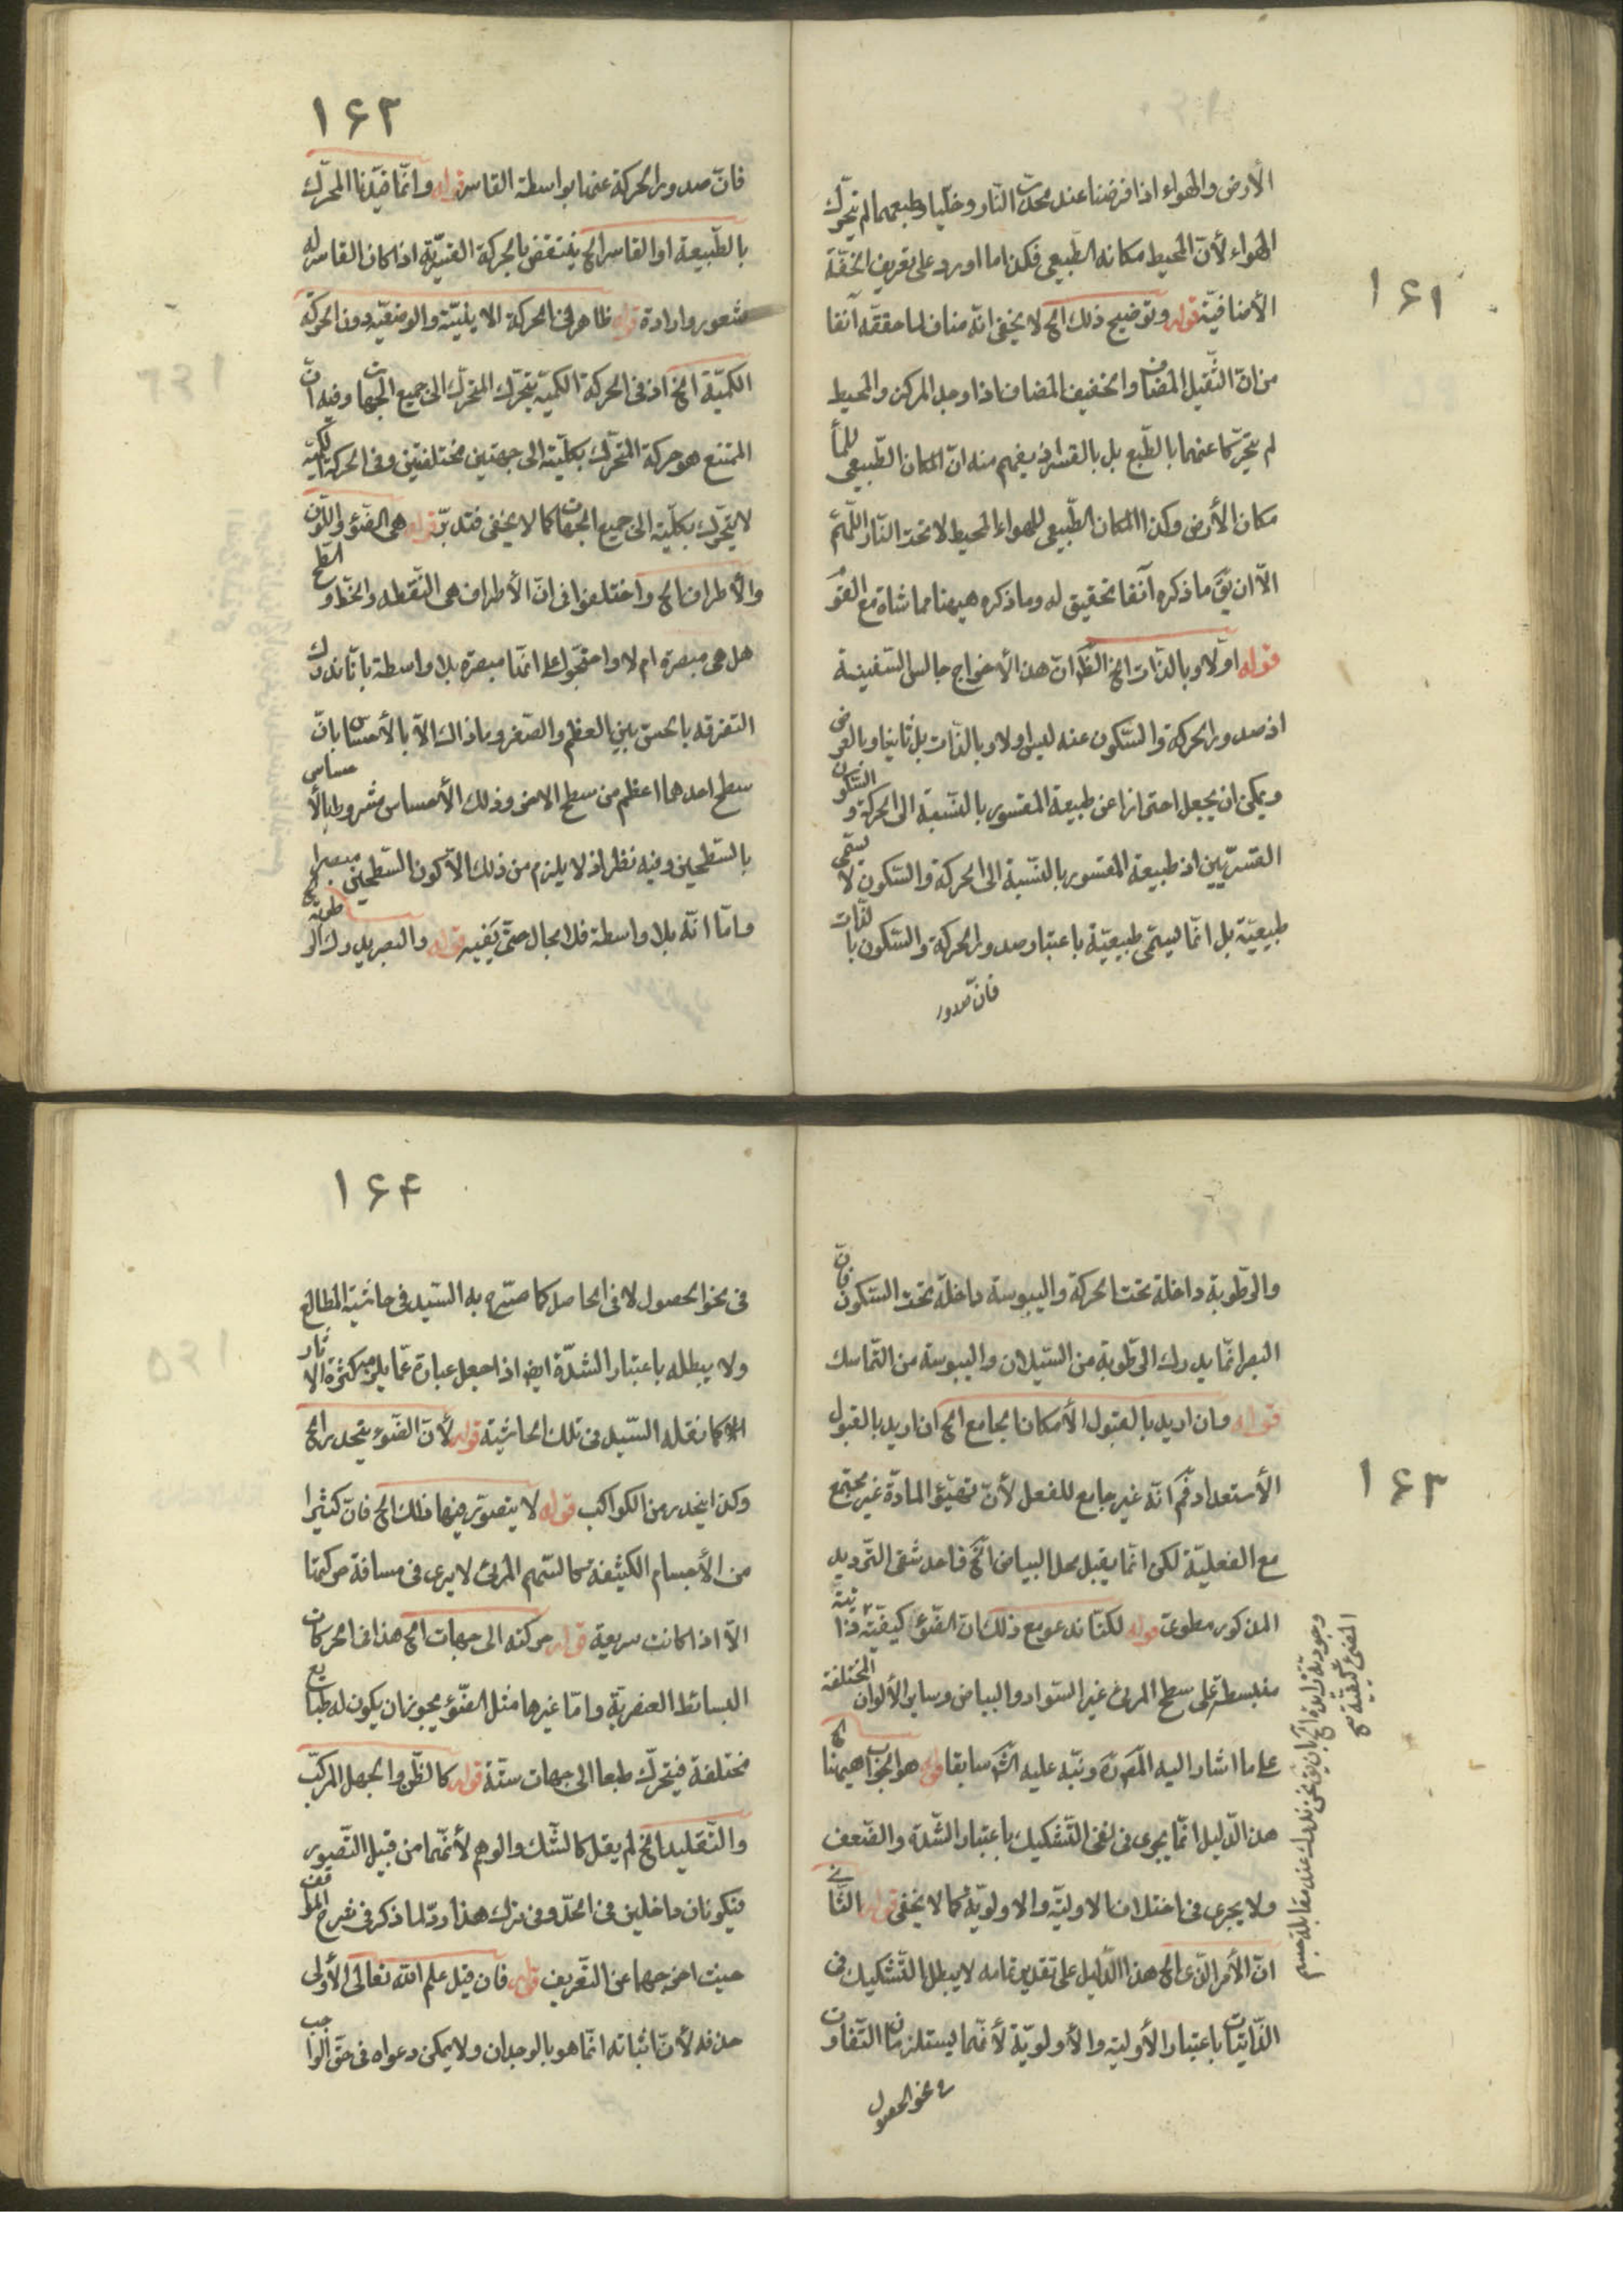 ۱۶۱
الأرض والهواء اذا فرضنا عند محدّب النّار وخلّيا وطبعهما لم يتحرّك
الهواء لأنّ المحيط مكانه الطّبيعى فكذا ما اورد على تعريف الخفّة
الأضافيّة قوله وتوضيح ذلك الخ لا يخفى انّه مناف لما حققه آنفا
من انّ الثّقيل المضاف والخفيف المضاف اذا وجد المركز والمحيط
لم يتحرّكا عنهما بالطّبع بل بالقسر اذ يفهم منه انّ المكان الطّبيعى للمأ
مكان الأرض وكذا المكان الطّبيعى للهواء المحيط لا تحت النّار اللّهمّ
الاّ ان يقَ ما ذكره آنفا تحقيق له وما ذكره ههنا مماشاة مع القوَ
قوله اولا وبالذّات الخ الظَ انّ هذا لأخراج جالس السّفينة
اذ صدور الحركة والسّكون عنه ليس اولا وبالذّات بل ثانيا وبالعرض
ويمكن ان يجعل احترازا عن طبيعة المقسور بالنّسبة الى الحركة والسّكون
القسريّين اذ طبيعة المقسور بالنّسبة الى الحركة والسّكون لا يسمّى
طبيعيّة بل انّما ليسمّى طبيعيّة باعتبار صدور الحركة والسّكون بالذّات
فانّ صدور
۱۶۲
فانّ صدور الحركة عنها بواسطة القاسر قوله وانّما قيّدنا المحرّك
بالطّبيعة او القاسر الخ ينتقض بالحركة القسريّة اذا كان القاسر له
شعور وارادة قوله ظاهر فى الحركة الاينيّة والوضعيّة دون الحركة
الكميّة الخ اذ فى الحركة الكميّة يتحرّك المتحرّك الى جميع الجهات وفيه انّ
الممتنع هو حركة المتحرّك بكلّيته الى جهتين مختلفتين وفى الحركة الكميّة
لا يتحرّك بكلّيته الى جميع الجهات كما لا يخفى فتدبّر قوله هى الضّوء واللّون
والأطراف الخ واختلفوا فى انّ الأطراف هى النّقطه والخطّ والسّطح
هل هى مبصرة ام لا واحتجّوا على انّها مبصرة بلا واسطة بانّا ندرك
التفرقه بالحسّ بين العظم والصّغر وما ذاك الاّ بالأحساس بانّ
سطح احدهما اعظم من سطح الاخر وذلك الأحساس مشروط بالأحساس
بالسّطحين وفيه نظر اذ لا يلزم من ذلك الاّ كون السّطحين مبصرا
وامّا انّه بلا واسطة فلا مجال حتّى يفيد قوله والبصر يدرك الرطوبة الخ
۱۶۳
والرّطوبة داخلة تحت الحركة واليبوسة داخلة تحت السّكون فانّ
البصر انّما يدرك الرّطوبة من السّيلان واليبوسة من التّماسك
قوله وان اريد بالقبول الأمكان الجامع الخ ان اريد بالقبول
الأستعداد فمَ انّه غير جامع للفعل لأنّ تهيّؤ المادّة غير مجتمع
مع الفعليّة لكن انّما يقبل محل البياض الخ فاحد شقى التّرديد
المذكور مطوىّ قوله لكنّا ندعو مع ذلك انّ الضّوء كيفيّة ذاتيّة
منبسطة على سطح المرئ غير السّواد والبياض وساير الألوان المختلفة
على ما اشار اليه المصَ ونبّه عليه الشَ سابقا قوله هو الجواب ههنا الخ
هذا الدّليل انّما يجرى فى نفى التّشكيك باعتبار الشّدة والضّعف
ولا يجرى فى اختلاف الاوليّة والاولويّة كما لا يخفى قوله الثّانى
انّ الأمر الّذى الخ هذا الدّليل على تقدير تمامه لا يبطل التّشكيك فى
الذّاتيّات باعتبار الأوليّة والأولويّة لأنّهما يستلزمان التّفاوت
فى نحو الحصول
المضئ كيفيّة
نحن ندرك عند مقابلة جسم
۱۶۴
فى نحو الحصول لا فى الحاصل كما صرّح به السّيد فى حاشية المطالع
ولا يبطله باعتبار الشدّة ايض اذا جعل عبارة عمّا يلزمه كثرة الاثار
كما نقله السّيد فى تلك الحاشية قوله لأنّ الضّوء ينحدر الخ
وكذا ينحدر من الكواكب قوله لا يتصوّر فيها ذلك الخ فانّ كثيرا
من الأجسام الكثيفة كالسّهم المرئ لا يرى فى مسافة حركتها
الاّ اذا كانت سريعة قوله حركته الى جهات الخ هذا فى الحركات
البسائط العنصريّة وامّا غيرها مثل الضّوء يجوز ان يكون له طبايع
مختلفة فيتحرّك طبعا الى جهات ستّة قوله كالظّن والجهل المركّب
والتّقليد الخ لم يقل كالشّك والوهم لأنّهما من قبيل التّصوير
فيكونان داخلين فى الحدّ وفى ترك هذا ردّ لما ذكر فى شرح المواقف
حيث اخرجهما عن التعريف قوله فان قيل علم اللّه تعالى الأولى
حذفه لأنّ اثباته انّما هو بالوجدان ولا يمكن دعواه فى حقّ الواجب